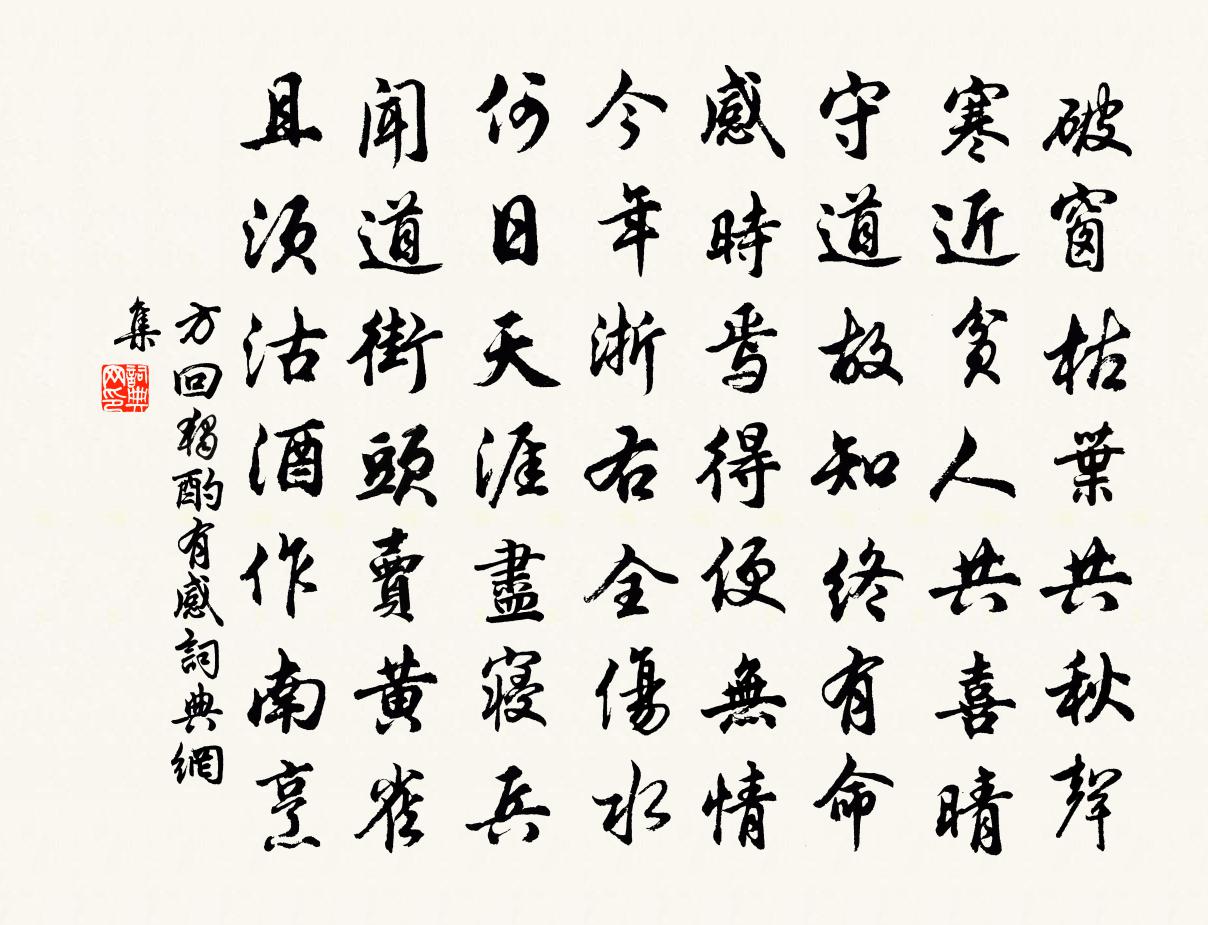 破窗枯葉共秋聲
寒近貧人共喜晴
守道故知終有命
感時焉得便無情
今年浙右全傷水
何日天涯盡寝兵
聞道街頭賣黃雀
且須沽酒作南烹
方回獨酌有感詞典網
集
詞典
网印